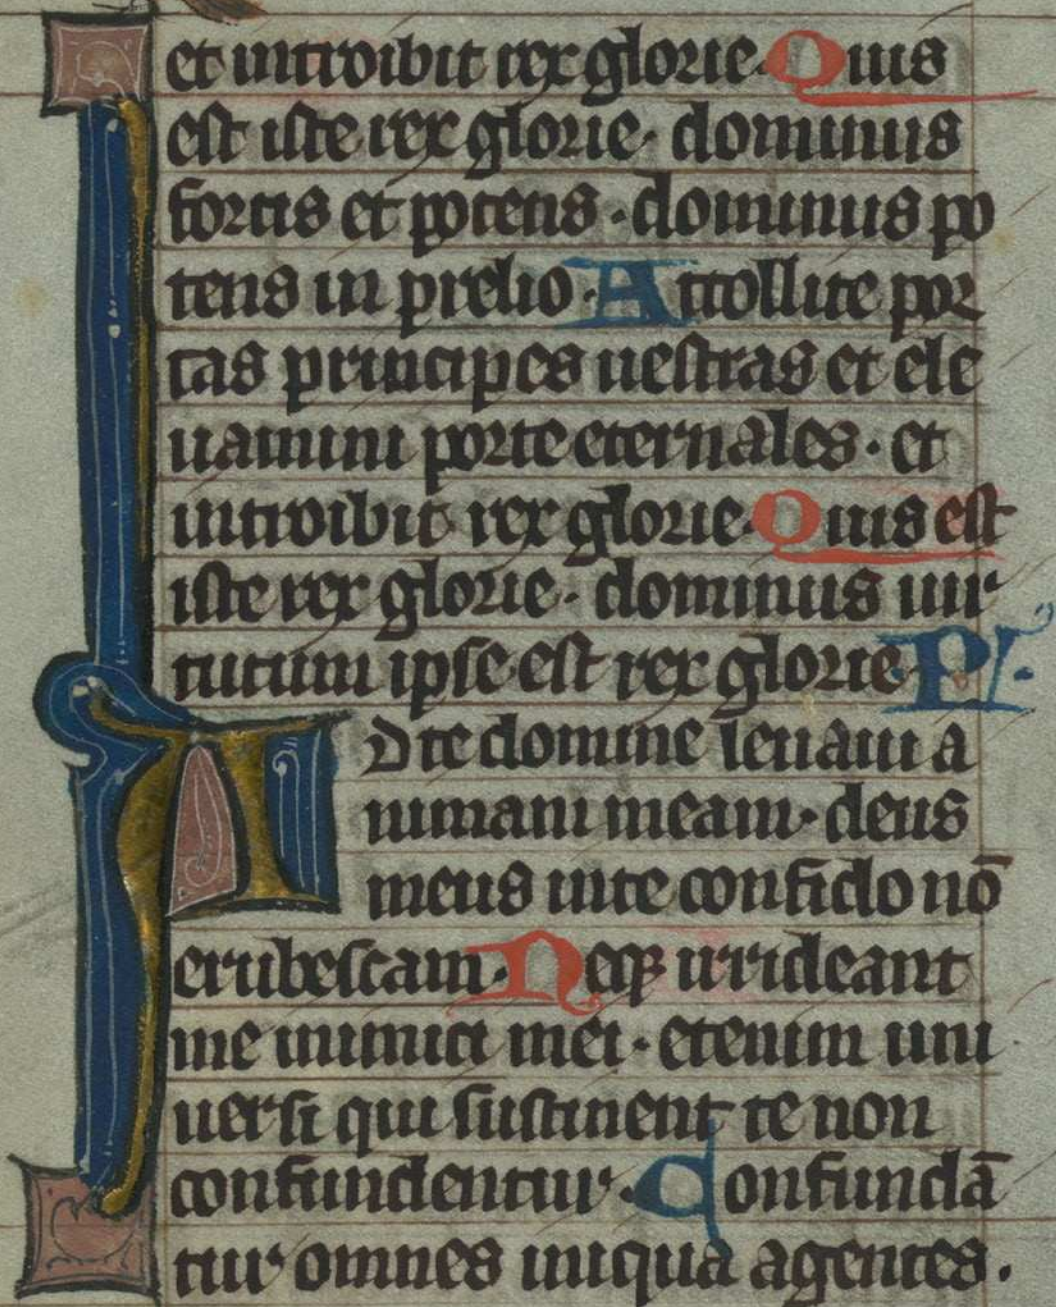 et introibit rex glorie. Quis
est iste rex glorie. dominus
fortis et potens. dominus po
tens in prelio. Attollite por
tas principes uestras et ele
uamini porte eternales. et
introibit rex glorie. Quis est
iste rex glorie. dominus uir
tutum ipse est rex glorie. Ps.
Ad te domine leuaui a
nimam meam. deus
meus in te confido nō
erubescam. Neqꝫ irrideant
me inimici mei. etenim uni
uersi qui sustinent te non
confundentur. Confundā
tur omnes iniqua agentes.